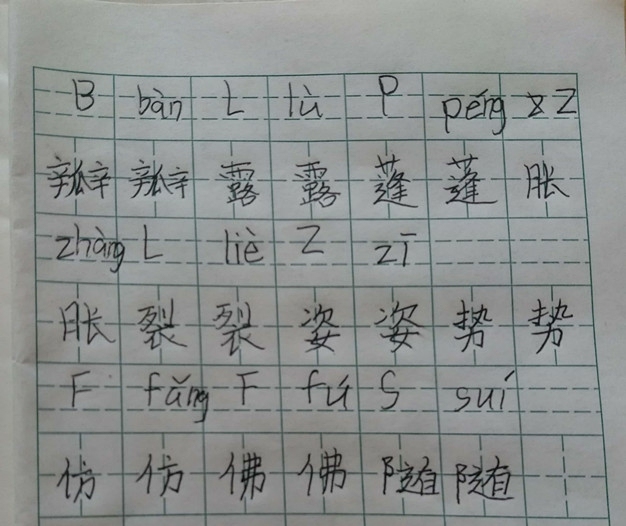 B bàn L lù P péng Z
瓣 瓣 露 露 蓬 蓬 胀
zhàng L liè Z zī
胀 裂 裂 姿 姿 势 势
F fǎng F fú S suí
仿 仿 佛 佛 随 随